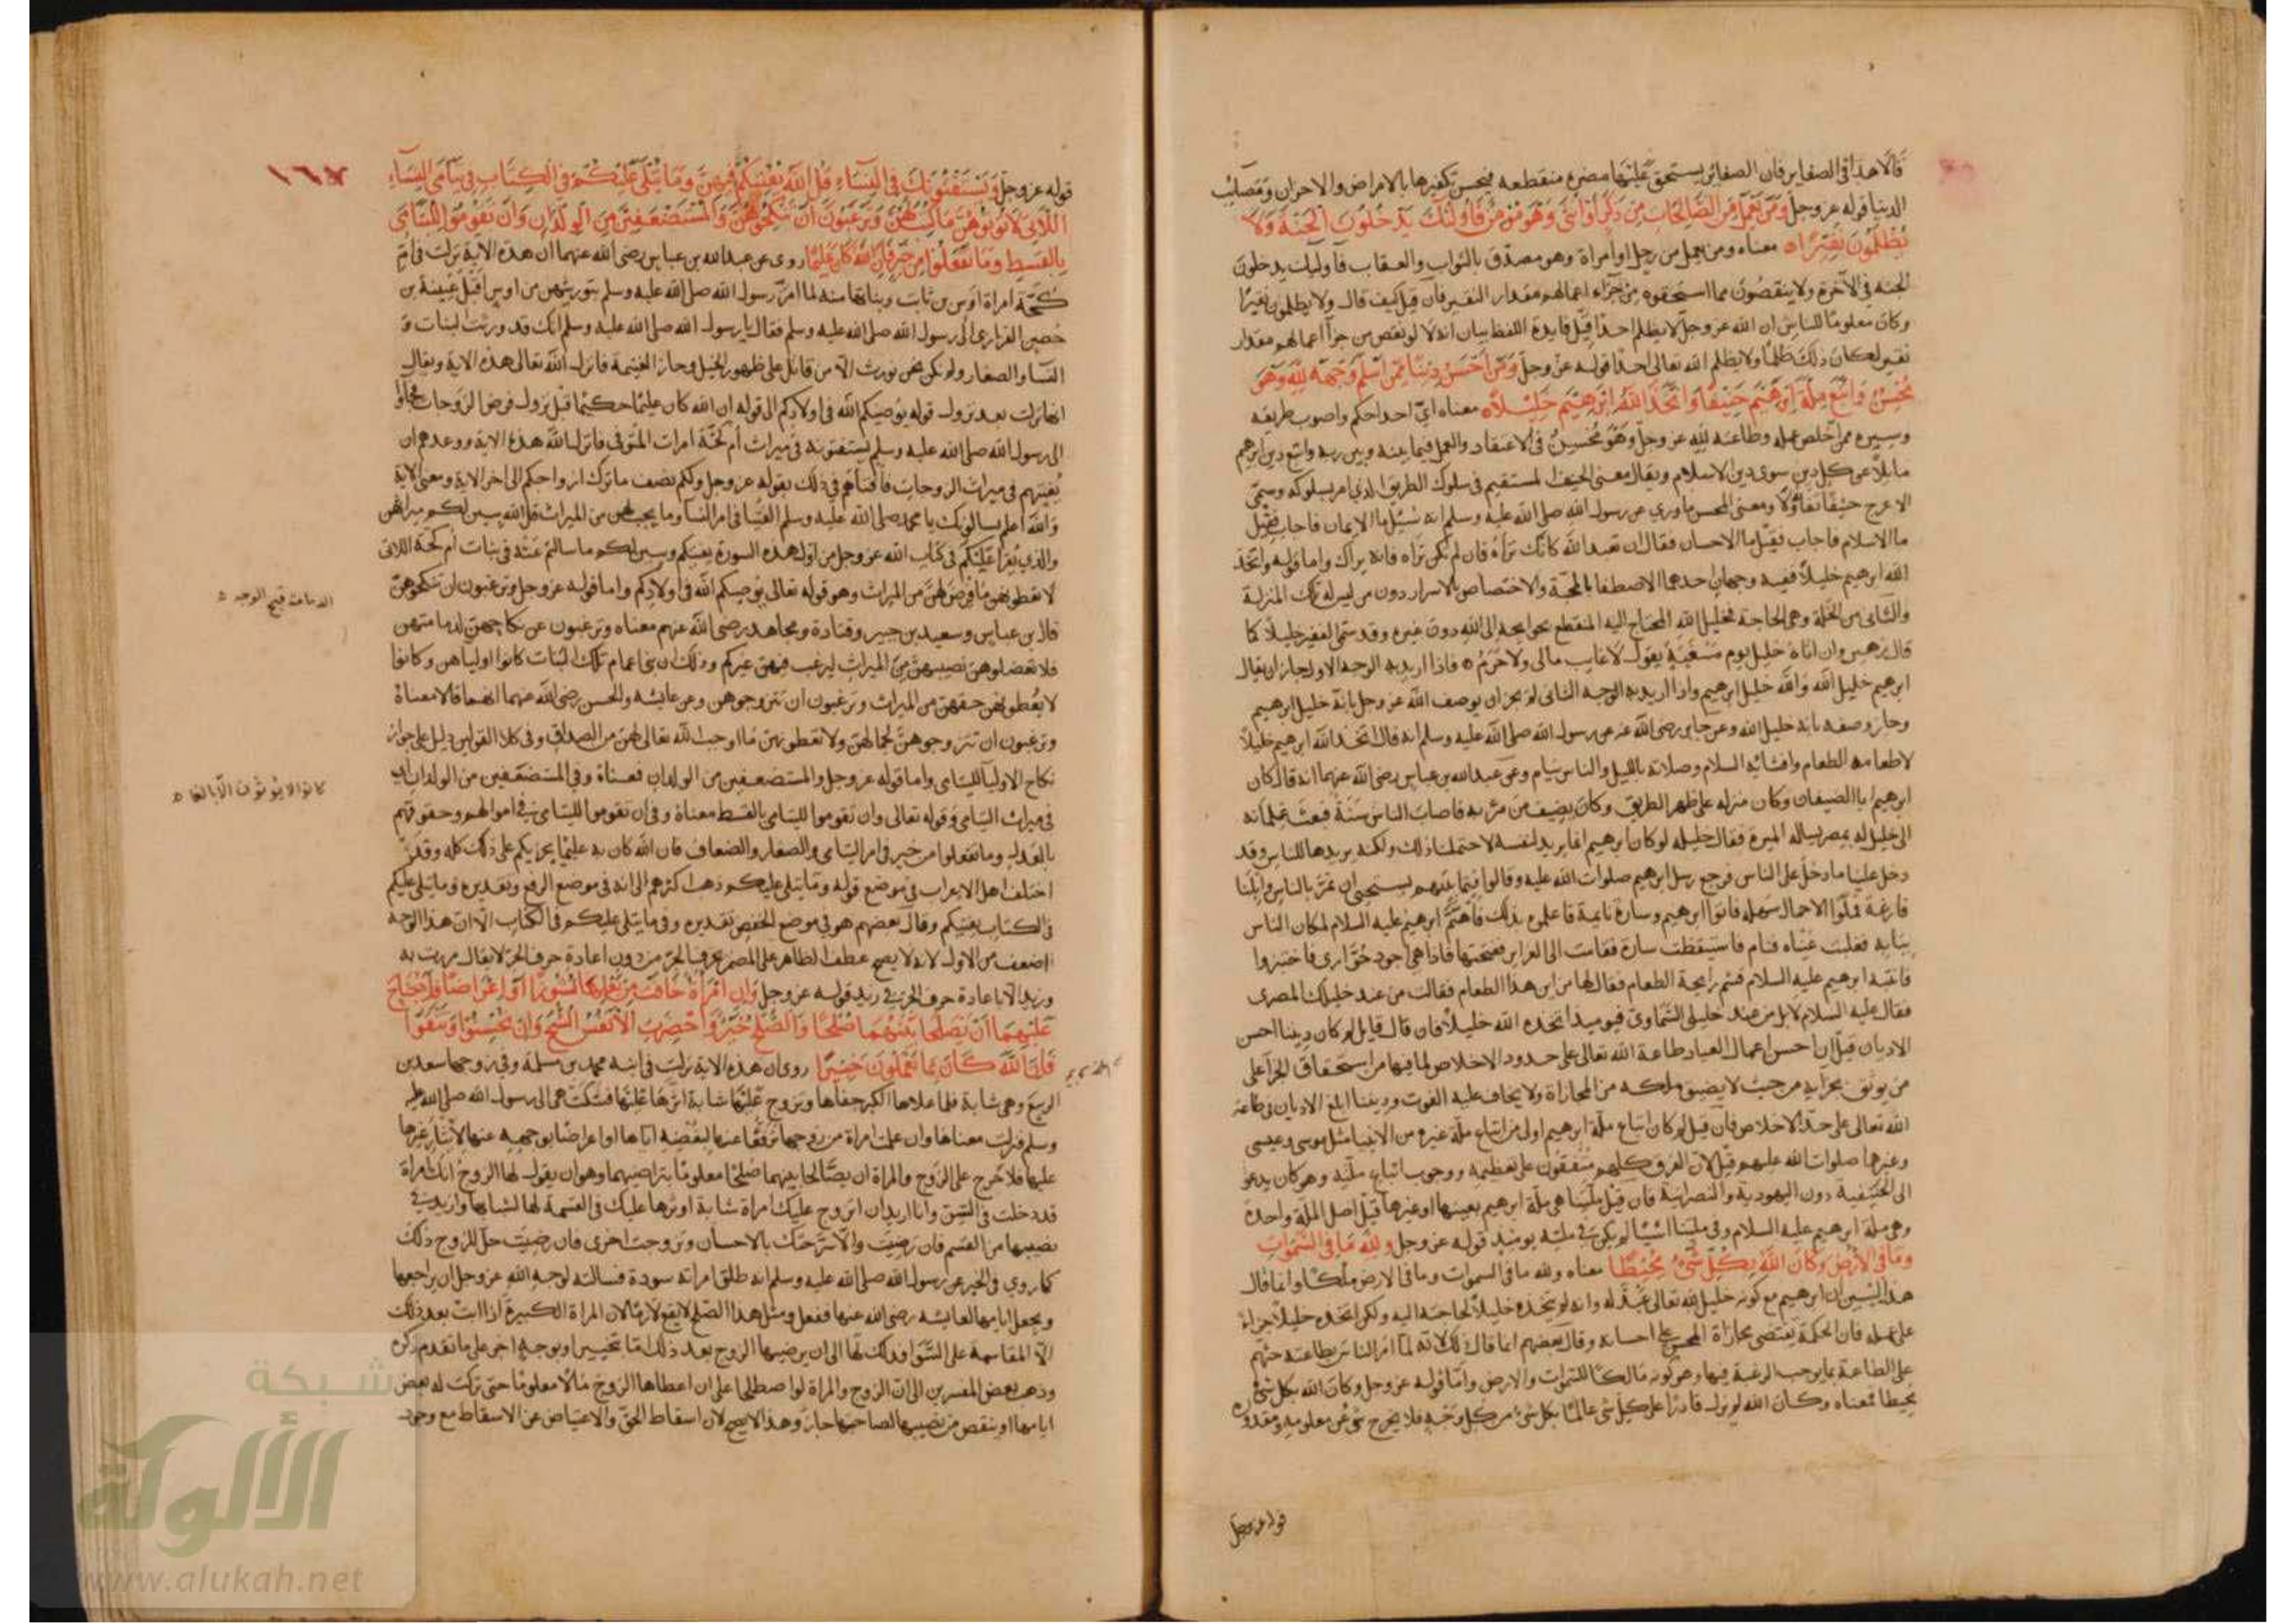 قالا هذا في الصغاير فان الصغائر يستحق عليها مضرة منقطعه فيحسن تكفيرها بالامراض والاحزان ومصائب
الدنيا قوله عز وجل ومن يعمل من الصالحات من ذكر او انثى وهو مؤمن فاولئك يدخلون الجنة ولا
يظلمون نقيرا معناه ومن يعمل من رجل او امراة وهو مصدق بالثواب والعقاب فاوليك يدخلون
الجنه في الآخرة ولا ينقصون مما استحقوه من جزاء اعمالهم مقدار النقير فان قيل كيف قال ولا يظلمون نقيرا
وكان معلوما للناس ان الله عز وجل لا يظلم احدا قيل فايدة اللفظ بيان انه لو نقص من جزآ اعمالهم مقدار
نقير لكان ذلك ظلما ولا يظلم الله تعالى احدا قوله عز وجل ومن احسن دينا ممن اسلم وجهه لله وهو
محسن واتبع ملة ابرهيم حنيفا واتخذ الله ابرهيم خليلا معناه اي احد احكم واصوب طريقه
وسيره ممن اخلص عمله وطاعته لله عز وجل وهو محسن في الاعتقاد والعمل فيما بينه وبين ربه واتبع دين ابرهيم
مايلا عن كل دين سوى دين الاسلام ويقال معنى الحنيف المستقيم في سلوك الطريق الذي امر بسلوكه وسمي
الاعرج حنيفا تفاؤلا ومعنى المحسن ما روي عن رسول الله صلى الله عليه وسلم انه سئل ما الايمان فاجاب فقيل
ما الاسلام فاجاب فقيل ما الاحسان فقال ان تعبد الله كانك تراه فان لم تكن تراه فانه يراك واما قوله واتخذ
الله ابرهيم خليلا ففيه وجهان احدهما الاصطفا بالمحبة والاختصاص بالاسرار دون من ليس له تلك المنزلة
والثاني من الخلة وهي الحاجة فخليل الله المحتاج اليه المنقطع بحوايجه الى الله دون غيره وقد سمي الفقير خليلا كما
قال زهير وان اتاه خليل يوم مسغبة يقول لا غايب مالي ولا حرم فاذا اريد به الوجه الاول جاز ان يقال
ابرهيم خليل الله والله خليل ابرهيم واذا اريد به الوجه الثاني لم يجز ان يوصف الله عز وجل بانه خليل ابرهيم
وجاز وصفه بانه خليل الله وعن جابر رضي الله عنه عن رسول الله صلى الله عليه وسلم انه قال اتخذ الله ابرهيم خليلا
لاطعامه الطعام وافشائه السلام وصلاته بالليل والناس نيام وعن عبد الله بن عباس رضي الله عنهما انه قال كان
ابرهيم ابا الضيفان وكان منزله على ظهر الطريق وكان يضيف من مر به فاصاب الناس سنة فبعث غلمانه
الى خليل له بمصر يساله الميرة فقال خليله لو كان ابرهيم انما يريد لنفسه لاحتملنا ذلك ولكنه يريدها للناس وقد
دخل علينا ما دخل على الناس فرجع رسل ابرهيم صلوات الله عليه وقالوا فيما بينهم نستحيي ان نمر بالناس وابلنا
فارغة فملوا الاحمال سهله فاتوا ابرهيم وسارة نايمة فاعلموه بذلك فاهتم ابرهيم عليه السلام لمكان الناس
ببابه فغلبت عيناه فنام فاستيقظت سارة فقامت الى الغراير ففتحتها فاذا هي اجود حوارى فاختبزوا
فانتبه ابرهيم عليه السلام فشم رايحة الطعام فقال لها من اين هذا الطعام فقالت من عند خليلك المصري
فقال عليه السلام لا بل من عند خليلي السماوي فيوميذ اتخذه الله خليلا فان قال قايل لم كان ديننا احسن
الاديان قيل ان احسن اعمال العباد طاعة الله تعالى على حدود الاخلاص لما فيها من استحقاق الجزآ على
من يوثق بجزايه من حيث لا يضيق ملكه من المجازاة ولا يخاف عليه الفوت وديننا ابلغ الاديان في طاعة
الله تعالى على حد الاخلاص فان قيل لم كان اتباع ملة ابرهيم اولى من اتباع ملة غيره من الانبيا مثل موسى وعيسى
وغيرهما صلوات الله عليهم قيل لان الفرق كلهم متفقون على تعظيمه ووجوب اتباع ملته وهو كان يدعو
الى الحنيفية دون اليهودية والنصرانية فان قيل ملتنا هي ملة ابرهيم بعينها او غيرها قيل اصل الملة واحدة
وهي ملة ابرهيم عليه السلام وفي ملتنا اشيا لم يكن في ملته يوميذ قوله عز وجل ولله ما في السموات
وما في الارض وكان الله بكل شيء محيطا معناه ولله ما في السموات وما في الارض ملكا وانما قال
هذا ليبين ان ابرهيم مع كونه خليل الله تعالى عبد له وانه لم يتخذه خليلا لحاجته اليه ولكن اتخذه خليلا جزاء
على عمله فان الحكمة يقتضي مجازاة المحسن على احسانه وقال بعضهم انما قال ذلك لانه لما امر الناس بطاعته حثهم
على الطاعة بما يوجب الرغبة فيها وهو كونه مالكا للسموات والارض واما قوله عز وجل وكان الله بكل شيء
محيطا فمعناه وكان الله لم يزل قادرا على كل شي عالما بكل شي من كل وجه فلا يخرج شي عن معلومه ومقدوره
قوله عز وجل
قوله عز وجل ويستفتونك في النساء قل الله يفتيكم فيهن وما يتلى عليكم في الكتاب في يتامى النساء
اللاتي لا تؤتونهن ما كتب لهن وترغبون ان تنكحوهن والمستضعفين من الولدان وان تقوموا لليتامى
بالقسط وما تفعلوا من خير فان الله كان به عليما روي عن عبد الله بن عباس رضي الله عنهما ان هذه الاية نزلت في ام
كحة امراة اوس بن ثابت وبناتها منه لما امر رسول الله صلى الله عليه وسلم بتوريثهن من اوس اقبل عيينة بن
حصين الفزاري الى رسول الله صلى الله عليه وسلم فقال يا رسول الله صلى الله عليه وسلم انك قد ورثت البنات و
النسا والصغار ولم نكن نحن نورث الا من قاتل على ظهور الخيل وحاز الغنيمة فانزل الله تعالى هذه الاية ويقال
انها نزلت بعد نزول قوله يوصيكم الله في اولادكم الى قوله ان الله كان عليما حكيما قبل نزول فرض الزوجات فجاؤا
الى رسول الله صلى الله عليه وسلم يستفتونه في ميراث ام كحة امرات المتوفى فانزل الله هذه الاية ووعدهم ان
يفتيهم في ميراث الزوجات فافتاهم في ذلك بقوله عز وجل ولكم نصف ما ترك ازواجكم الى اخر الاية ومعنى الاية
والله اعلم يسالونك يا محمد صلى الله عليه وسلم الفتيا في امر النسآ وما يجب لهن من الميراث قل الله يبين لكم ميراثهن
والذي يقرا عليكم في كتاب الله عز وجل من اول هذه السورة يفتيكم ويبين لكم ما سالتم عنه في بنات ام كحة اللاتي
لا تعطونهن ما فرض لهن من الميراث وهو قوله تعالى يوصيكم الله في اولادكم واما قوله عز وجل وترغبون ان تنكحوهن
قال بن عباس وسعيد بن جبير وقتادة ومجاهد رضي الله عنهم معناه وترغبون عن نكاحهن لدمامتهن
فلا تعضلوهن نصيبهن من الميراث ليرغب فيهن غيركم وذلك ان بني اعمام تلك البنات كانوا اولياهن وكانوا
لا يعطونهن حقهن من الميراث ويرغبون ان يتزوجوهن وعن عايشه والحسن رضي الله عنهما انهما قالا معناه
وترغبون ان تتزوجوهن لجمالهن ولا تعطونهن ما اوجب الله تعالى لهن من الصداق وفي كلا القولين دليل على جواز
نكاح الاوليآ لليتامى واما قوله عز وجل والمستضعفين من الولدان فمعناه وفي المستضعفين من الولدان اي
في ميراث اليتامى وقوله تعالى وان تقوموا لليتامى بالقسط معناه وفي ان تقوموا لليتامى في اموالهم وحقوقهم
بالعدل وما تفعلوا من خير في امر اليتامى والصغار والضعاف فان الله كان به عليما يجزيكم على ذلك كله وقد
اختلف اهل الاعراب في موضع قوله وما يتلى عليكم ذهب اكثرهم الى انه في موضع الرفع وتقديره وما يتلى عليكم
في الكتاب يفتيكم وقال بعضهم هو في موضع الخفض تقديره وفي ما يتلى عليكم في الكتاب الا ان هذا الوجه
اضعف من الاول لانه لا يصح عطف الظاهر على المضمر بحرف الجر من دون اعادة حرف الجر لا يقال مررت به
وزيد الا باعادة حرف الجر في زيد قوله عز وجل وان امراة خافت من بعلها نشوزا او اعراضا فلا جناح
عليهما ان يصلحا بينهما صلحا والصلح خير واحضرت الانفس الشح وان تحسنوا وتتقوا
فان الله كان بما تعملون خبيرا روي ان هذه الاية نزلت في ابنة محمد بن مسلمة وفي زوجها سعد بن
الربيع وهي شابة فلما علاها الكبر جفاها وتزوج عليها شابة اثرها عليها فشكت هي الى رسول الله صلى الله عليه
وسلم فنزلت معناها وان علمت امراة من زوجها ترفعا عنها لبغضه اياها او اعراضا بوجهه عنها لايثار غيرها
عليها فلا حرج على الزوج والمراة ان يصالحا بينهما صلحا معلوما بتراضيهما وهو ان يقول لها الزوج انك امراة
قد دخلت في السن وانا اريد ان اتزوج عليك امراة شابة اوثرها عليك في القسمة لها لشبابها
نصيبها من القسم فان رضيت والا سرحتك بالاحسان وتزوجت اخرى فان رضيت حل للزوج ذلك
كما روي في الخبر عن رسول الله صلى الله عليه وسلم انه طلق امراته سودة فسالته لوجه الله عز وجل ان يراجعها
ويجعل ايامها لعايشه رضي الله عنها ففعل ومثل هذا الصلح لا يقع لازما لان المراة الكبيرة اذا ابت بعد ذلك
الا المقاسمة على السوا فذلك لها الى ان يرضيها الزوج بعد ذلك اما بتخيير او بوجه اخر على ما تقدم ذكره
وذهب بعض المفسرين الى ان الزوج والمراة لو اصطلحا على ان اعطاها الزوج مالا معلوما حتى تركت له بعض
ايامها او ينقص من نصيبها لصاحبتها جاز وهذا لا يصح لان اسقاط الحق والاعتياض عن الاسقاط مع وجود
الدمامة قبح الوجه
كانوا لا يورثون الا بالغا
١٦٧
شبكة
الألوكة
www.alukah.net